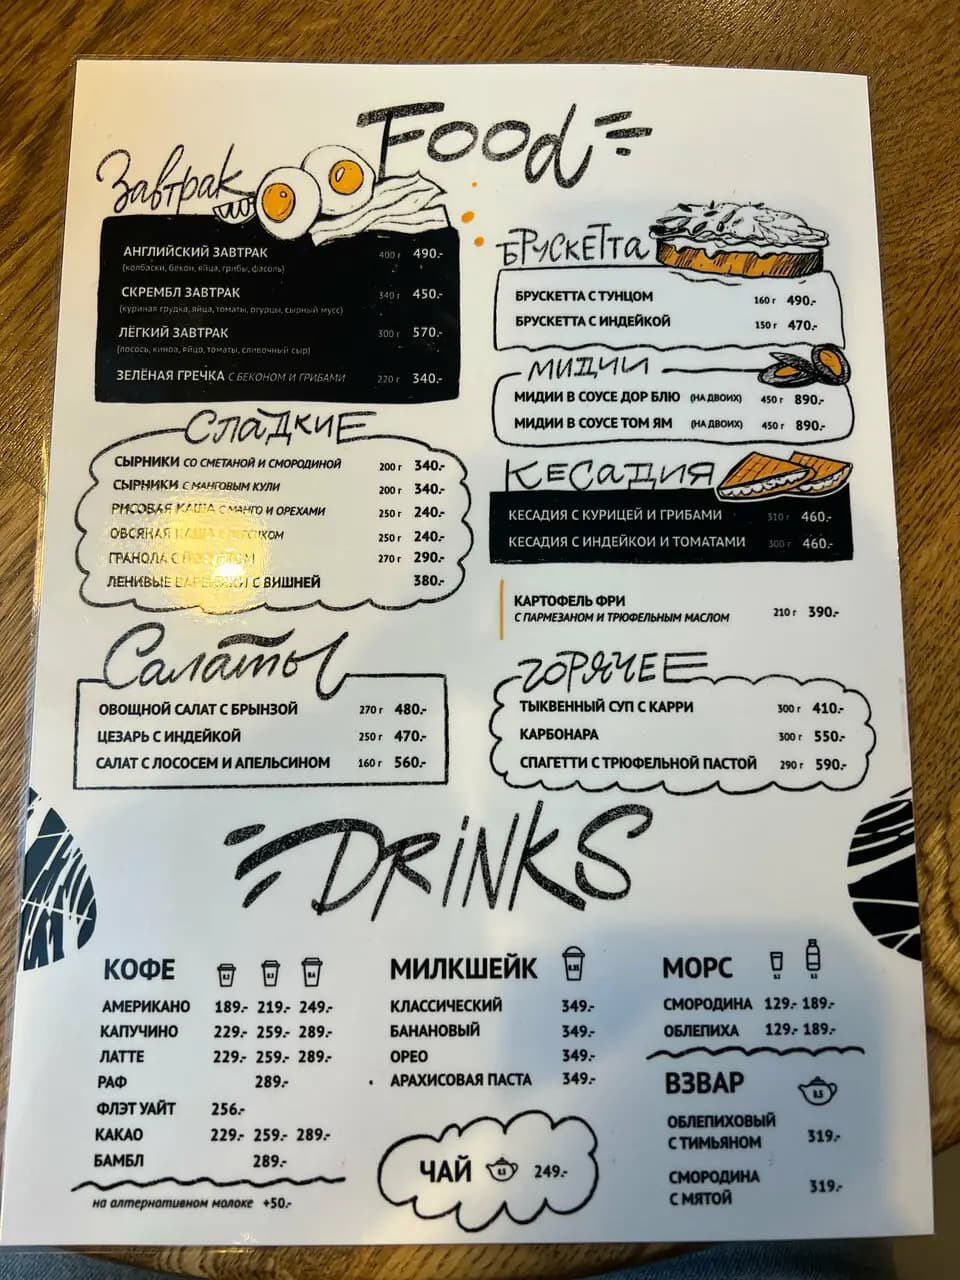 Food
Завтрак
АНГЛИЙСКИЙ ЗАВТРАК 400 г 490.-
(колбаски, бекон, яйца, грибы, фасоль)
СКРЕМБЛ ЗАВТРАК 340 г 450.-
(куриная грудка, яйца, томаты, огурцы, сырный мусс)
ЛЁГКИЙ ЗАВТРАК 300 г 570.-
(лосось, киноа, яйцо, томаты, сливочный сыр)
ЗЕЛЁНАЯ ГРЕЧКА С БЕКОНОМ И ГРИБАМИ 220 г 340.-
СЛАДКИЕ
СЫРНИКИ СО СМЕТАНОЙ И СМОРОДИНОЙ 200 г 340.-
СЫРНИКИ С МАНГОВЫМ КУЛИ 200 г 340.-
РИСОВАЯ КАША С МАНГО И ОРЕХАМИ 250 г 240.-
ОВСЯНАЯ КАША 250 г 240.-
ГРАНОЛА С 270 г 290.-
ЛЕНИВЫЕ ВАРЕНИКИ С ВИШНЕЙ 380.-
Салаты
ОВОЩНОЙ САЛАТ С БРЫНЗОЙ 270 г 480.-
ЦЕЗАРЬ С ИНДЕЙКОЙ 250 г 470.-
САЛАТ С ЛОСОСЕМ И АПЕЛЬСИНОМ 160 г 560.-
БРУСКЕТТА
БРУСКЕТТА С ТУНЦОМ 160 г 490.-
БРУСКЕТТА С ИНДЕЙКОЙ 150 г 470.-
МИДИИ
МИДИИ В СОУСЕ ДОР БЛЮ (НА ДВОИХ) 450 г 890.-
МИДИИ В СОУСЕ ТОМ ЯМ (НА ДВОИХ) 450 г 890.-
КЕСАДИЯ
КЕСАДИЯ С КУРИЦЕЙ И ГРИБАМИ 310 г 460.-
КЕСАДИЯ С ИНДЕЙКОЙ И ТОМАТАМИ 300 г 460.-
КАРТОФЕЛЬ ФРИ
С ПАРМЕЗАНОМ И ТРЮФЕЛЬНЫМ МАСЛОМ 210 г 390.-
ГОРЯЧЕЕ
ТЫКВЕННЫЙ СУП С КАРРИ 300 г 410.-
КАРБОНАРА 300 г 550.-
СПАГЕТТИ С ТРЮФЕЛЬНОЙ ПАСТОЙ 290 г 590.-
DRiNKS
КОФЕ 0.2 0.3 0.4
АМЕРИКАНО 189.- 219.- 249.-
КАПУЧИНО 229.- 259.- 289.-
ЛАТТЕ 229.- 259.- 289.-
РАФ 289.-
ФЛЭТ УАЙТ 256.-
КАКАО 229.- 259.- 289.-
БАМБЛ 289.-
на алтернативном молоке +50.-
МИЛКШЕЙК 0.35
КЛАССИЧЕСКИЙ 349.-
БАНАНОВЫЙ 349.-
ОРЕО 349.-
АРАХИСОВАЯ ПАСТА 349.-
ЧАЙ 0.5 249.-
МОРС 0.2 0.5
СМОРОДИНА 129.- 189.-
ОБЛЕПИХА 129.- 189.-
ВЗВАР 0.5
ОБЛЕПИХОВЫЙ
С ТИМЬЯНОМ 319.-
СМОРОДИНА
С МЯТОЙ 319.-